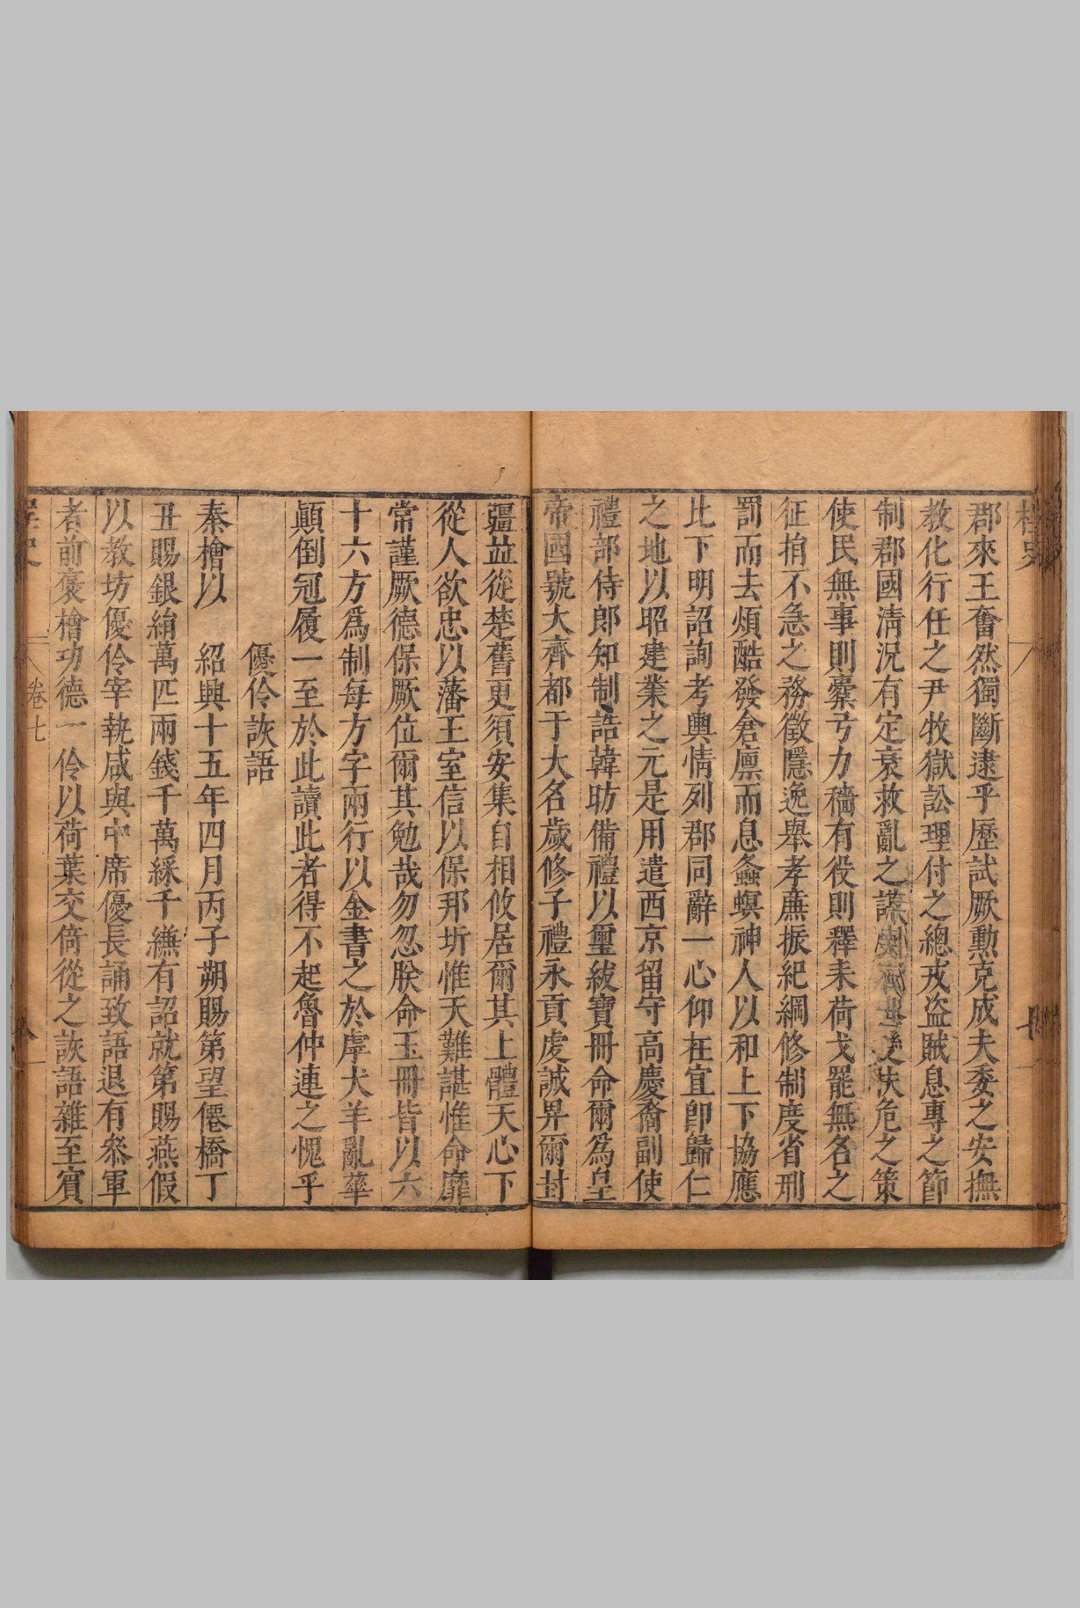 郡來王奮然獨斷逮乎歷試厥勳克成夫委之安撫
教化行任之尹牧獄訟理付之總戎盜賊息專之節
制郡國淸況有定衰救亂之謀扶危之策
使民無事則櫜弓力穡有役則釋耒荷戈罷無名之
征掊不急之務徵隱逸舉孝廉振紀綱修制度省刑
罰而去煩酷發倉廩而息螽螟神人以和上下協應
比下明詔詢考輿情列郡同辭一心仰在宜卽歸仁
之地以昭建業之元是用遣西京留守高慶裔副使
禮部侍郎知制誥韓昉備禮以璽紱寶冊命爾爲皇
帝國號大齊都于大名歲修子禮永貢虔誠畀爾封
疆並從楚舊更須安集自相攸居爾其上體天心下
從人欲忠以藩王室信以保邦圻惟天難諶惟命靡
常謹厥德保厥位爾其勉哉勿忽朕命玉冊皆以六
十六方爲制每方字兩行以金書之於虖犬羊亂華
顚倒冠履一至於此讀此者得不起魯仲連之愧乎
優伶詼語
秦檜以 紹興十五年四月丙子朔賜第望僊橋丁
丑賜銀絹萬匹兩錢千萬綵千縑有詔就第賜燕假
以教坊優伶宰執咸與中席優長誦致語退有參軍
者前褒檜功德一伶以荷葉交倚從之詼語雜至賓
卷七